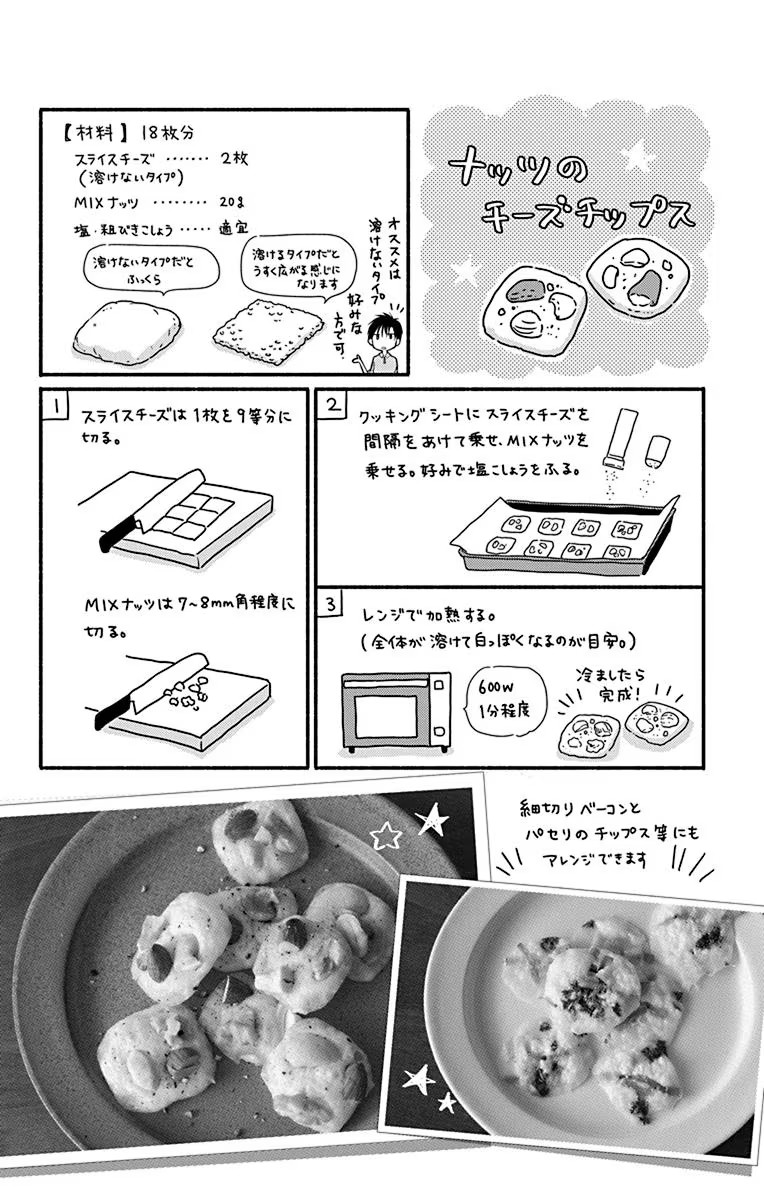 ナッツの
チーズチップス
【材料】 18枚分
スライスチーズ ······· 2枚
(溶けないタイプ)
MIXナッツ ········ 20g
塩・粗びきこしょう ····· 適宜
溶けないタイプだと
ふっくら
溶けるタイプだと
うすく広がる感じに
なります
オススメは
溶けないタイプ
好みな
方で可
1
スライスチーズは1枚を9等分に
切る。
MIXナッツは7~8mm角程度に
切る。
2
クッキングシートにスライスチーズを
間隔をあけて乗せ、MIXナッツを
乗せる。好みで塩こしょうをふる。
3
レンジで加熱する。
(全体が溶けて白っぽくなるのが目安。)
600W
1分程度
冷ましたら
完成!
細切りベーコンと
パセリのチップス等にも
アレンジできます